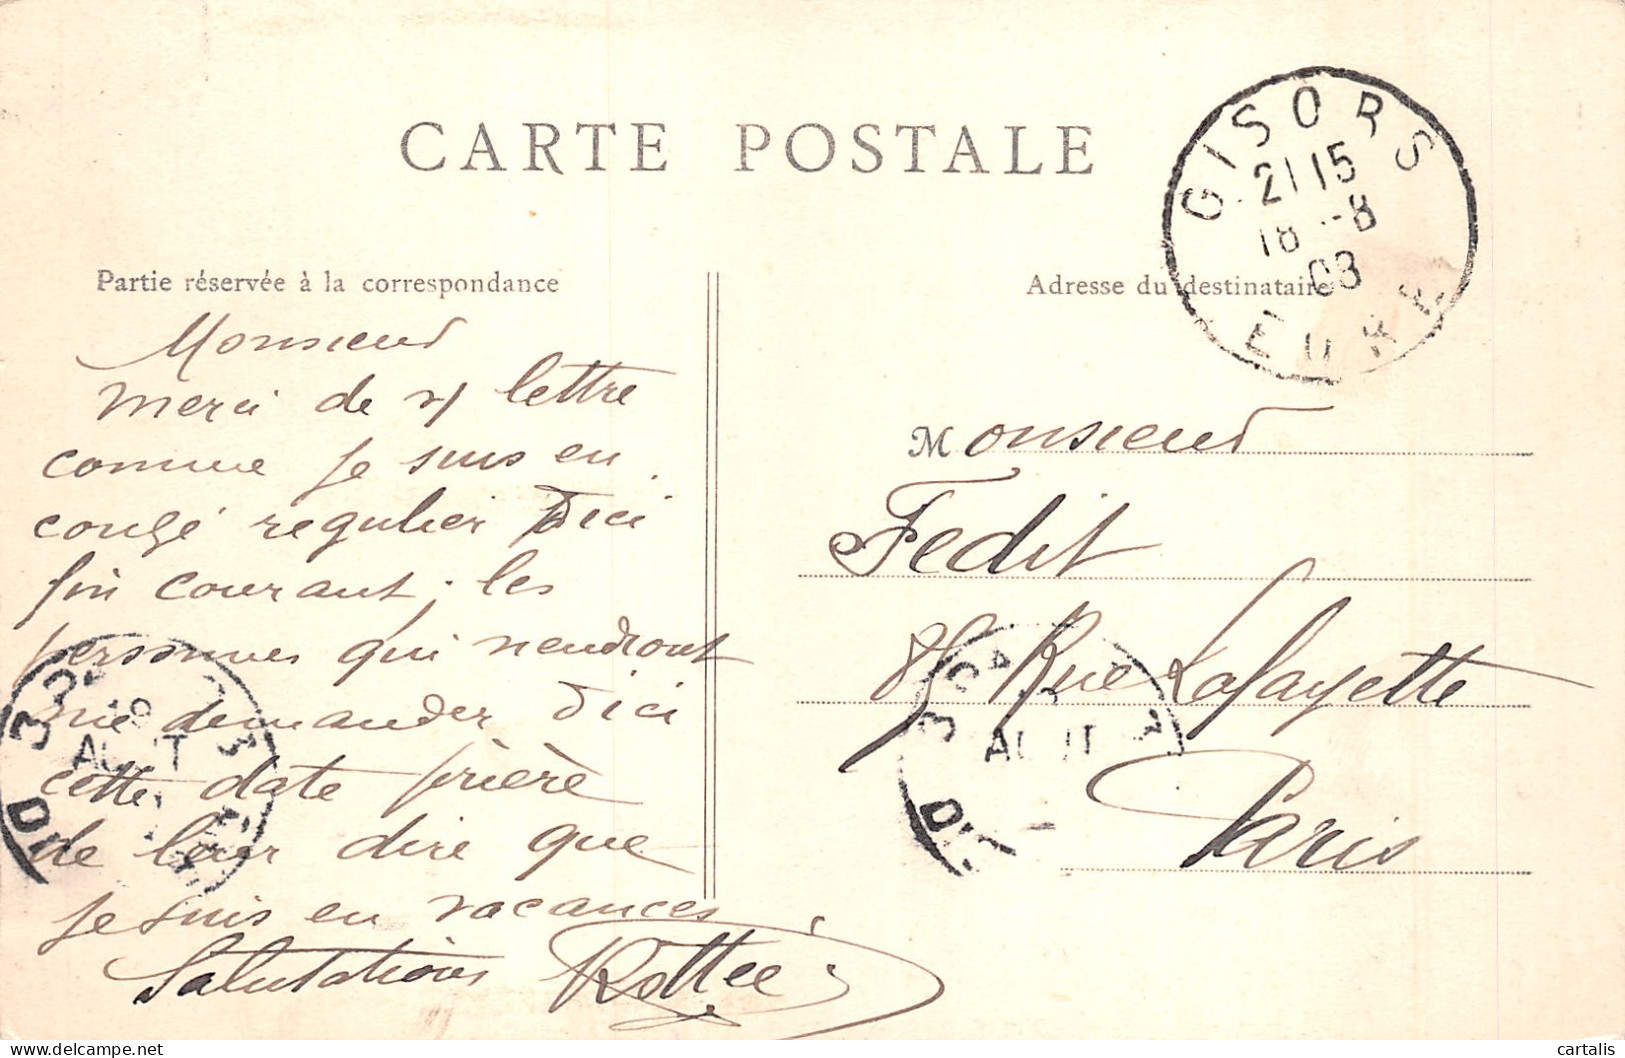 CARTE POSTALE
GISORS
2115
18 -8
08
EURE
Partie réservée à la correspondance
Adresse du destinataire
Monsieur
Merci de v/ lettre
comme je suis en
congé regulier d'ici
fin courant ; les
personnes qui viendront
me demander d'ici
cette date prière
de leur dire que
je suis en vacances
Salutations Rottée
Monsieur
Fedit
85 Rue Lafayette
Paris
AOUT
AOUT
cartalis